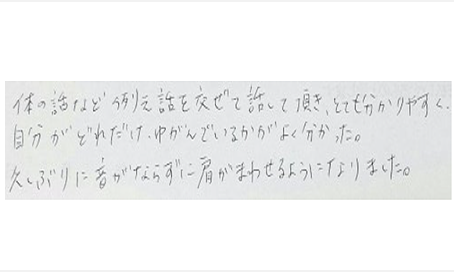 体の話など例え話を交ぜて話して頂き、とても分かりやすく、
自分がどれだけ、ゆがんでいるかがよく分かった。
久しぶりに音がならずに肩がまわせるようになりました。